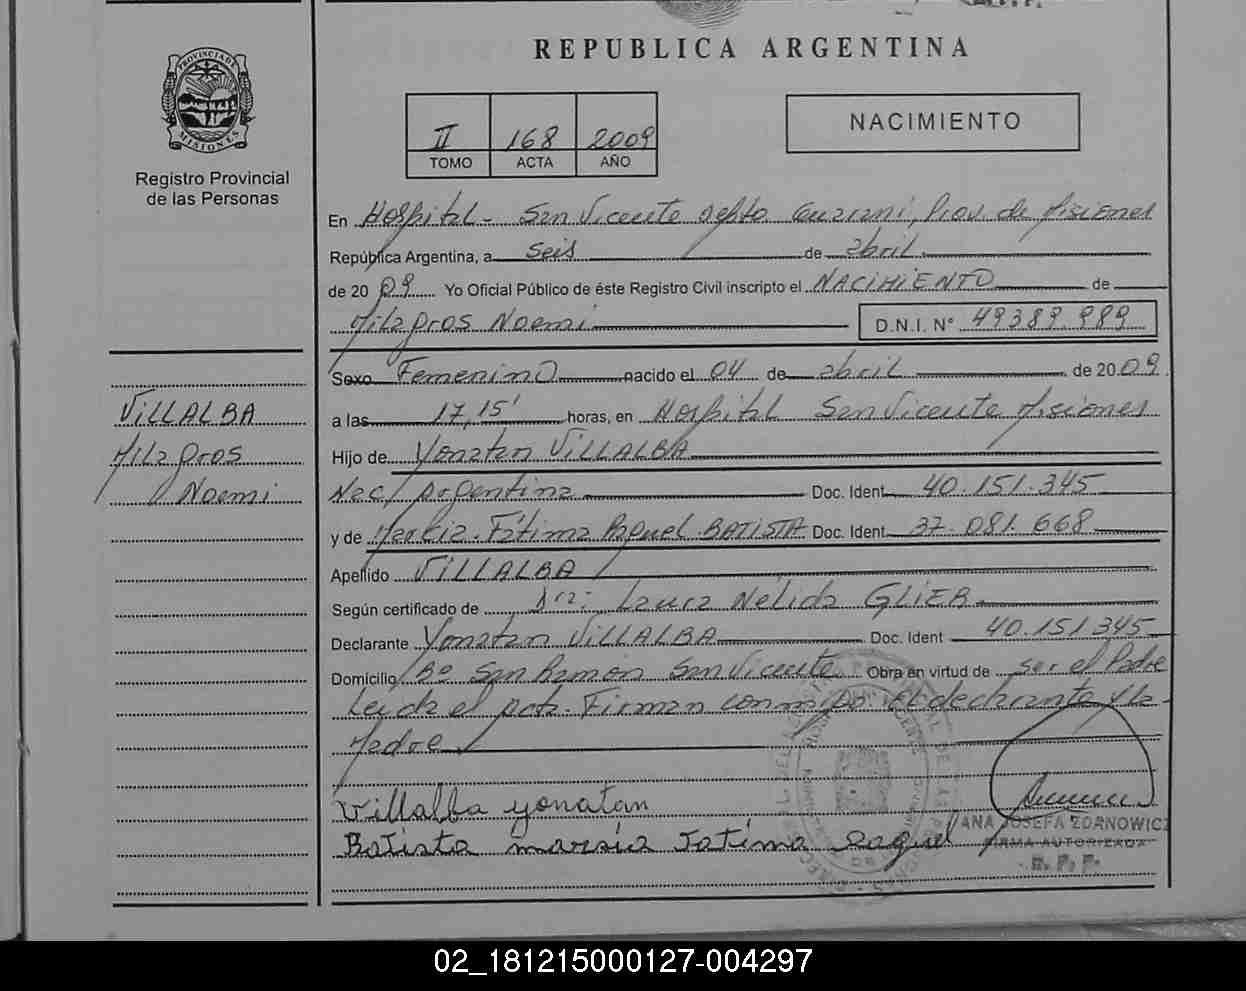 REPUBLICA ARGENTINA
PROVINCIA DE
MISIONES
Registro Provincial
de las Personas
II 168 2009
TOMO ACTA AÑO
NACIMIENTO
En Hospital - San Vicente depto Guarani, Prov. de Misiones
República Argentina, a seis de abril
de 2009 Yo Oficial Público de éste Registro Civil inscripto el NACIMIENTO de
Milagros Noemi D.N.I. N° 49389.989
Sexo Femenino nacido el 04 de abril de 2009
a las 17,15' horas, en Hospital San Vicente Misiones
Hijo de Yonatan VILLALBA
Nac/ Argentina Doc. Ident. 40.151.345
y de Marcia Fátima Raquel BATISTA Doc. Ident. 37.081.668
Apellido VILLALBA
Según certificado de Dra: Laura Nelida GLIER
Declarante Yonatan VILLALBA Doc. Ident 40.151.345
Domicilio B° San Ramón San Vicente Obra en virtud de ser el Padre
Leida el acta. Firman el declarante y la
Madre
VILLALBA
Milagros
Noemi
Villalba yonatan
Batista marsia Fatima Raquel
ANA JOSEFA ZDANOWICZ
FIRMA AUTORIZADA
R. P. P.
02_181215000127-004297